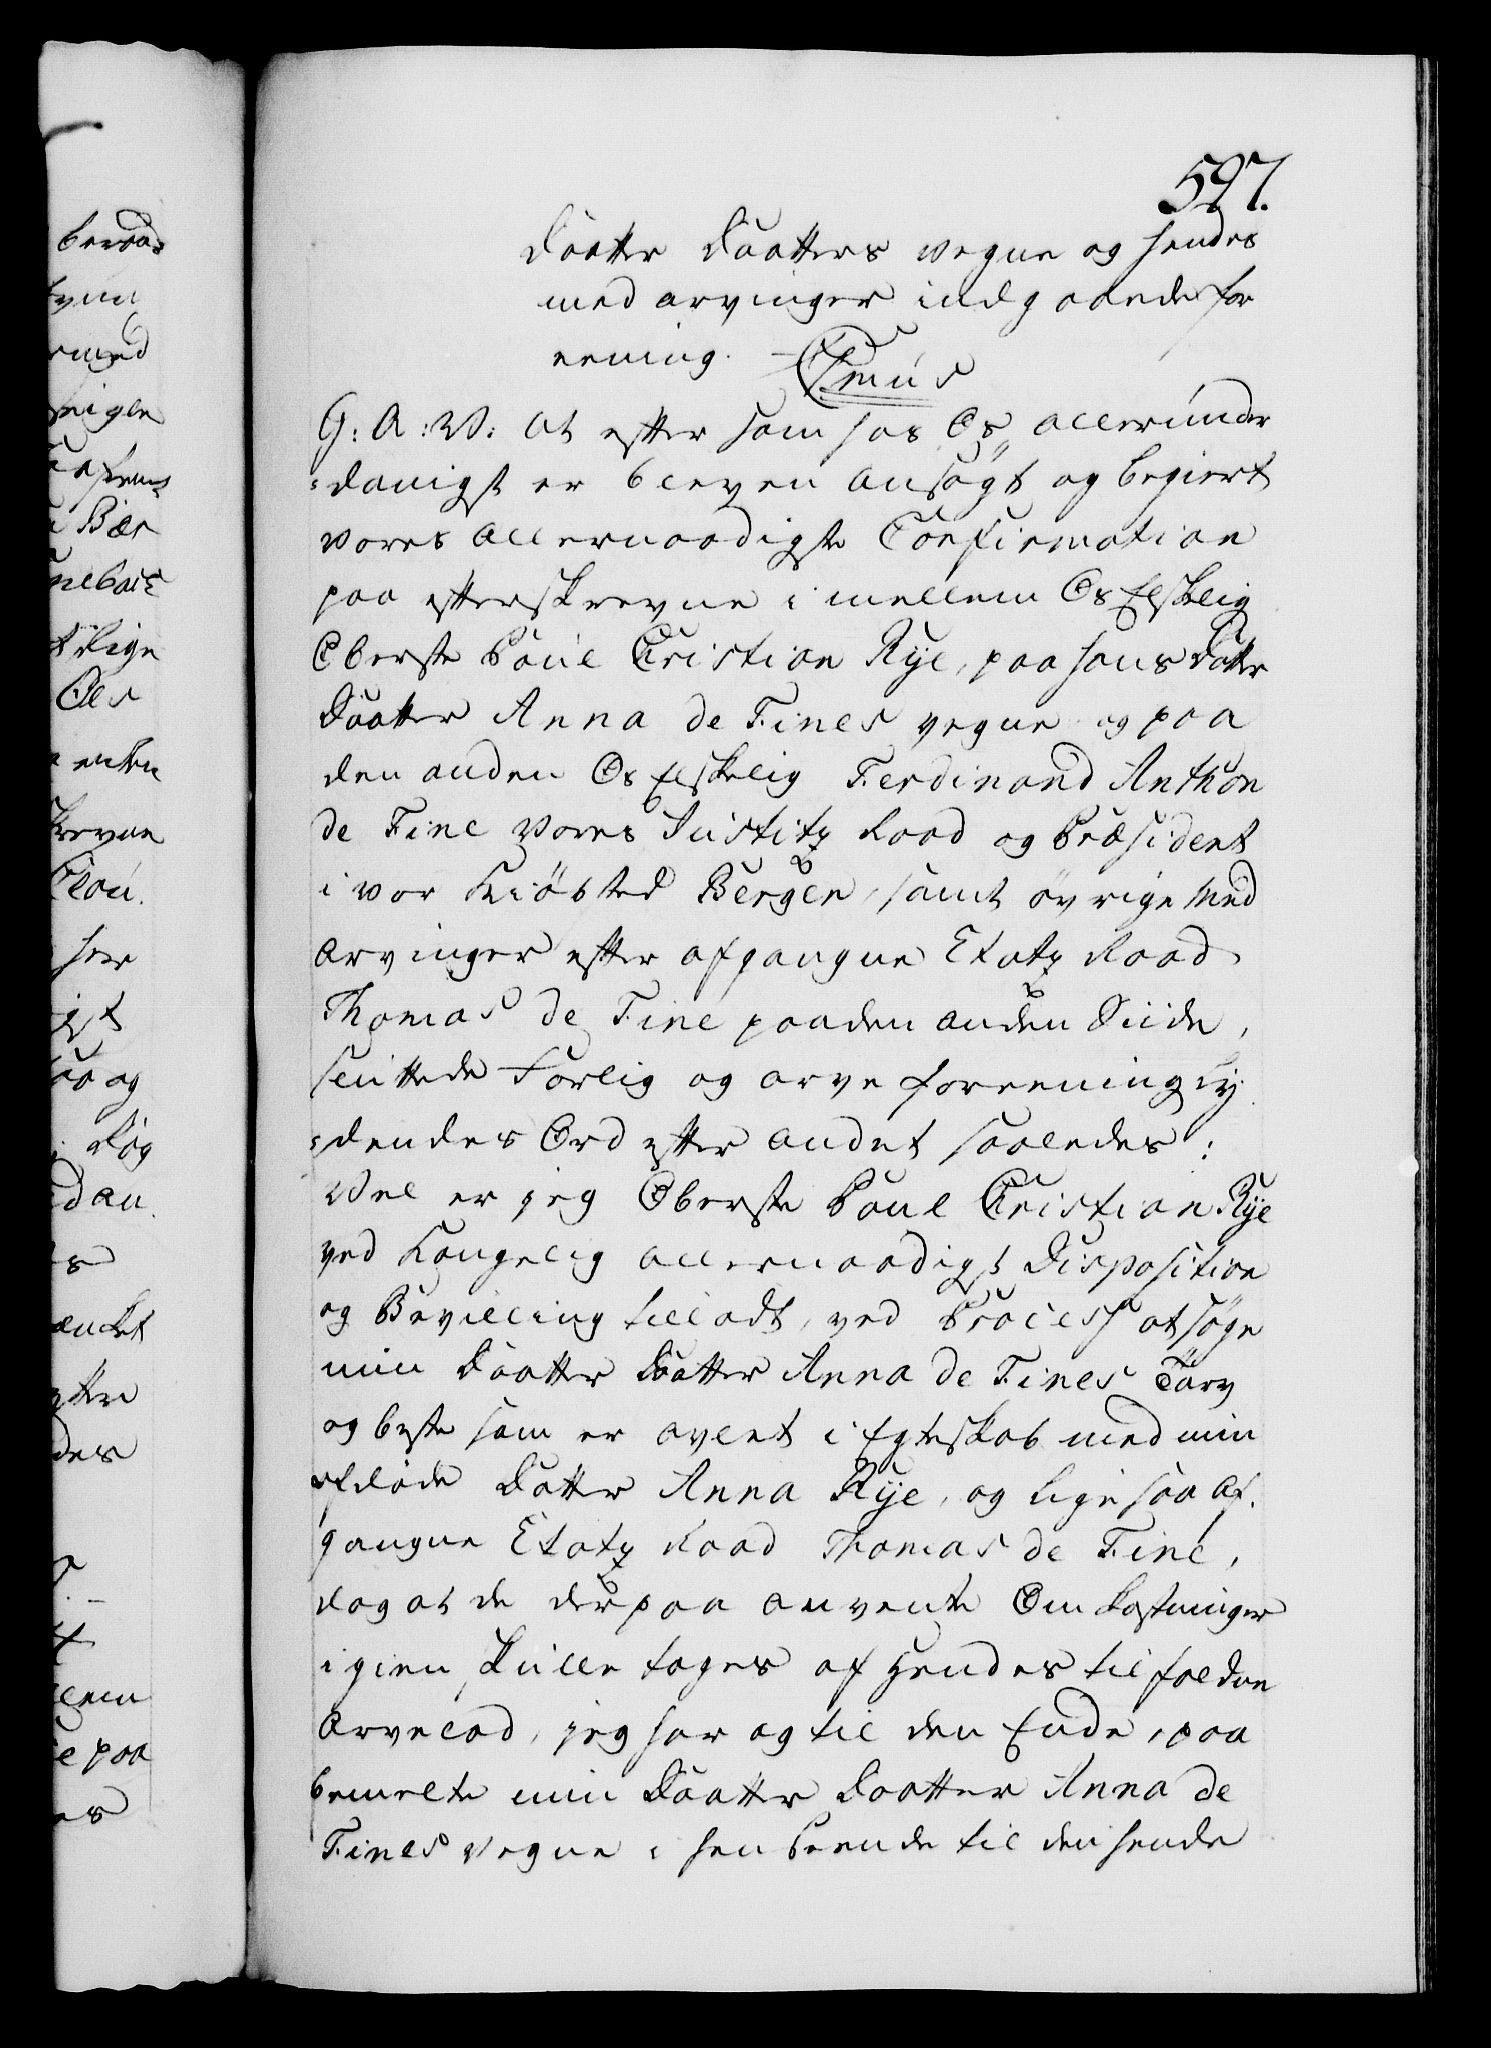 597.
Daatter Daatters vegne og hendes
med arvinger indgaaende for
eening.
Cmus
G: A: V: At efter som hos Os allerunder
=danigst er bleven ansøgt og begiert
vores allernaadigste Confirmation
paa efterskrevne i mellem Os Elskelig
Oberste Poul Cristian Rÿe, paa hans datter
Daatter Anna de Fines vegne og paa
den anden Os Elskelig Ferdinand Anthon
de Fine vores Justitz Raad og Præsident
i vor Kiøbsted Bergen, samt øvrige Med
arvinger efter afgangne Etatz Raad
Thomas de Fine paa den anden Siide,
sluttede Forlig og arve foreening ly
=dendes Ord efter andet saaledes:
Vel er jeg Oberste Poul Cristian Rÿe
ved Kongelig allernaadigst Disposition
og Bevilling tilladt, ved Process at søge
min Daatter Daatter Anna de Fines Tarv
og beste som er avlet i Egteskab med min
afdøde Datter Anna Rÿe, og lige saa af.
gangne Etatz Raad Thomas de Fine,
dog at de derpaa anvente Omkostninger
igien skulle tages af hendes tilfaldne
Arvelod, jeg har og til den Ende, paa
bemelte min Daatter Daatter Anna de
Fines vegne i henseende til den hende
beraad
Bær
Rige
Ols
enten
her
og
Døg
paa